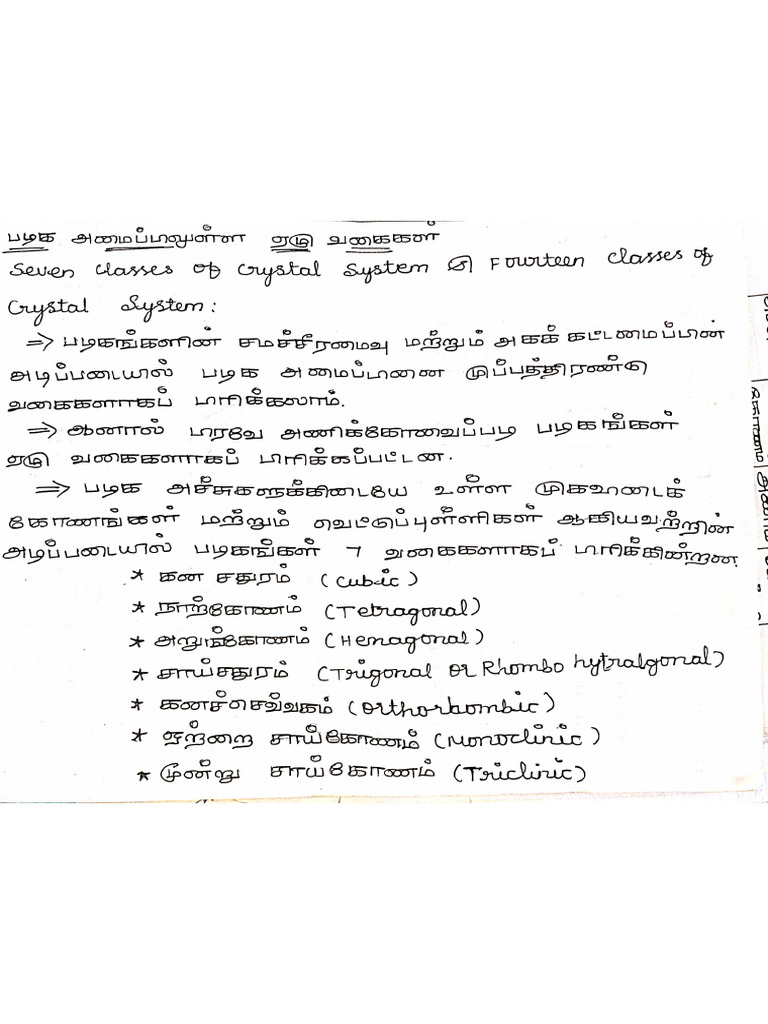 படிக அமைப்பிலுள்ள ஏழு வகைகள்
Seven classes of Crystal System & Fourteen classes of
Crystal System:
⇒ படிகங்களின் சமச்சீரமைவு மற்றும் அகக் கட்டமைப்பின்
அடிப்படையில் படிக அமைப்பினை முப்பத்திரண்டு
வகைகளாகப் பிரிக்கலாம்.
⇒ ஆனால் பிரவே அணிக்கோவைப்படி படிகங்கள்
ஏழு வகைகளாகப் பிரிக்கப்பட்டன.
⇒ படிக அச்சுகளுக்கிடையே உள்ள முகவிடைக்
கோணங்கள் மற்றும் வெட்டுப்புள்ளிகள் ஆகியவற்றின்
அடிப்படையில் படிகங்கள் 7 வகைகளாகப் பிரிக்கின்றன.
* கன சதுரம் (Cubic)
* நாற்கோணம் (Tetragonal)
* அறுங்கோணம் (Henagonal)
* சாய்சதுரம் (Trigonal or Rhombo hytralgonal)
* கனச்செவ்வகம் (Orthorhombic)
* ஒற்றை சாய்கோணம் (Monoclinic)
* மூன்று சாய்கோணம் (Triclinic)